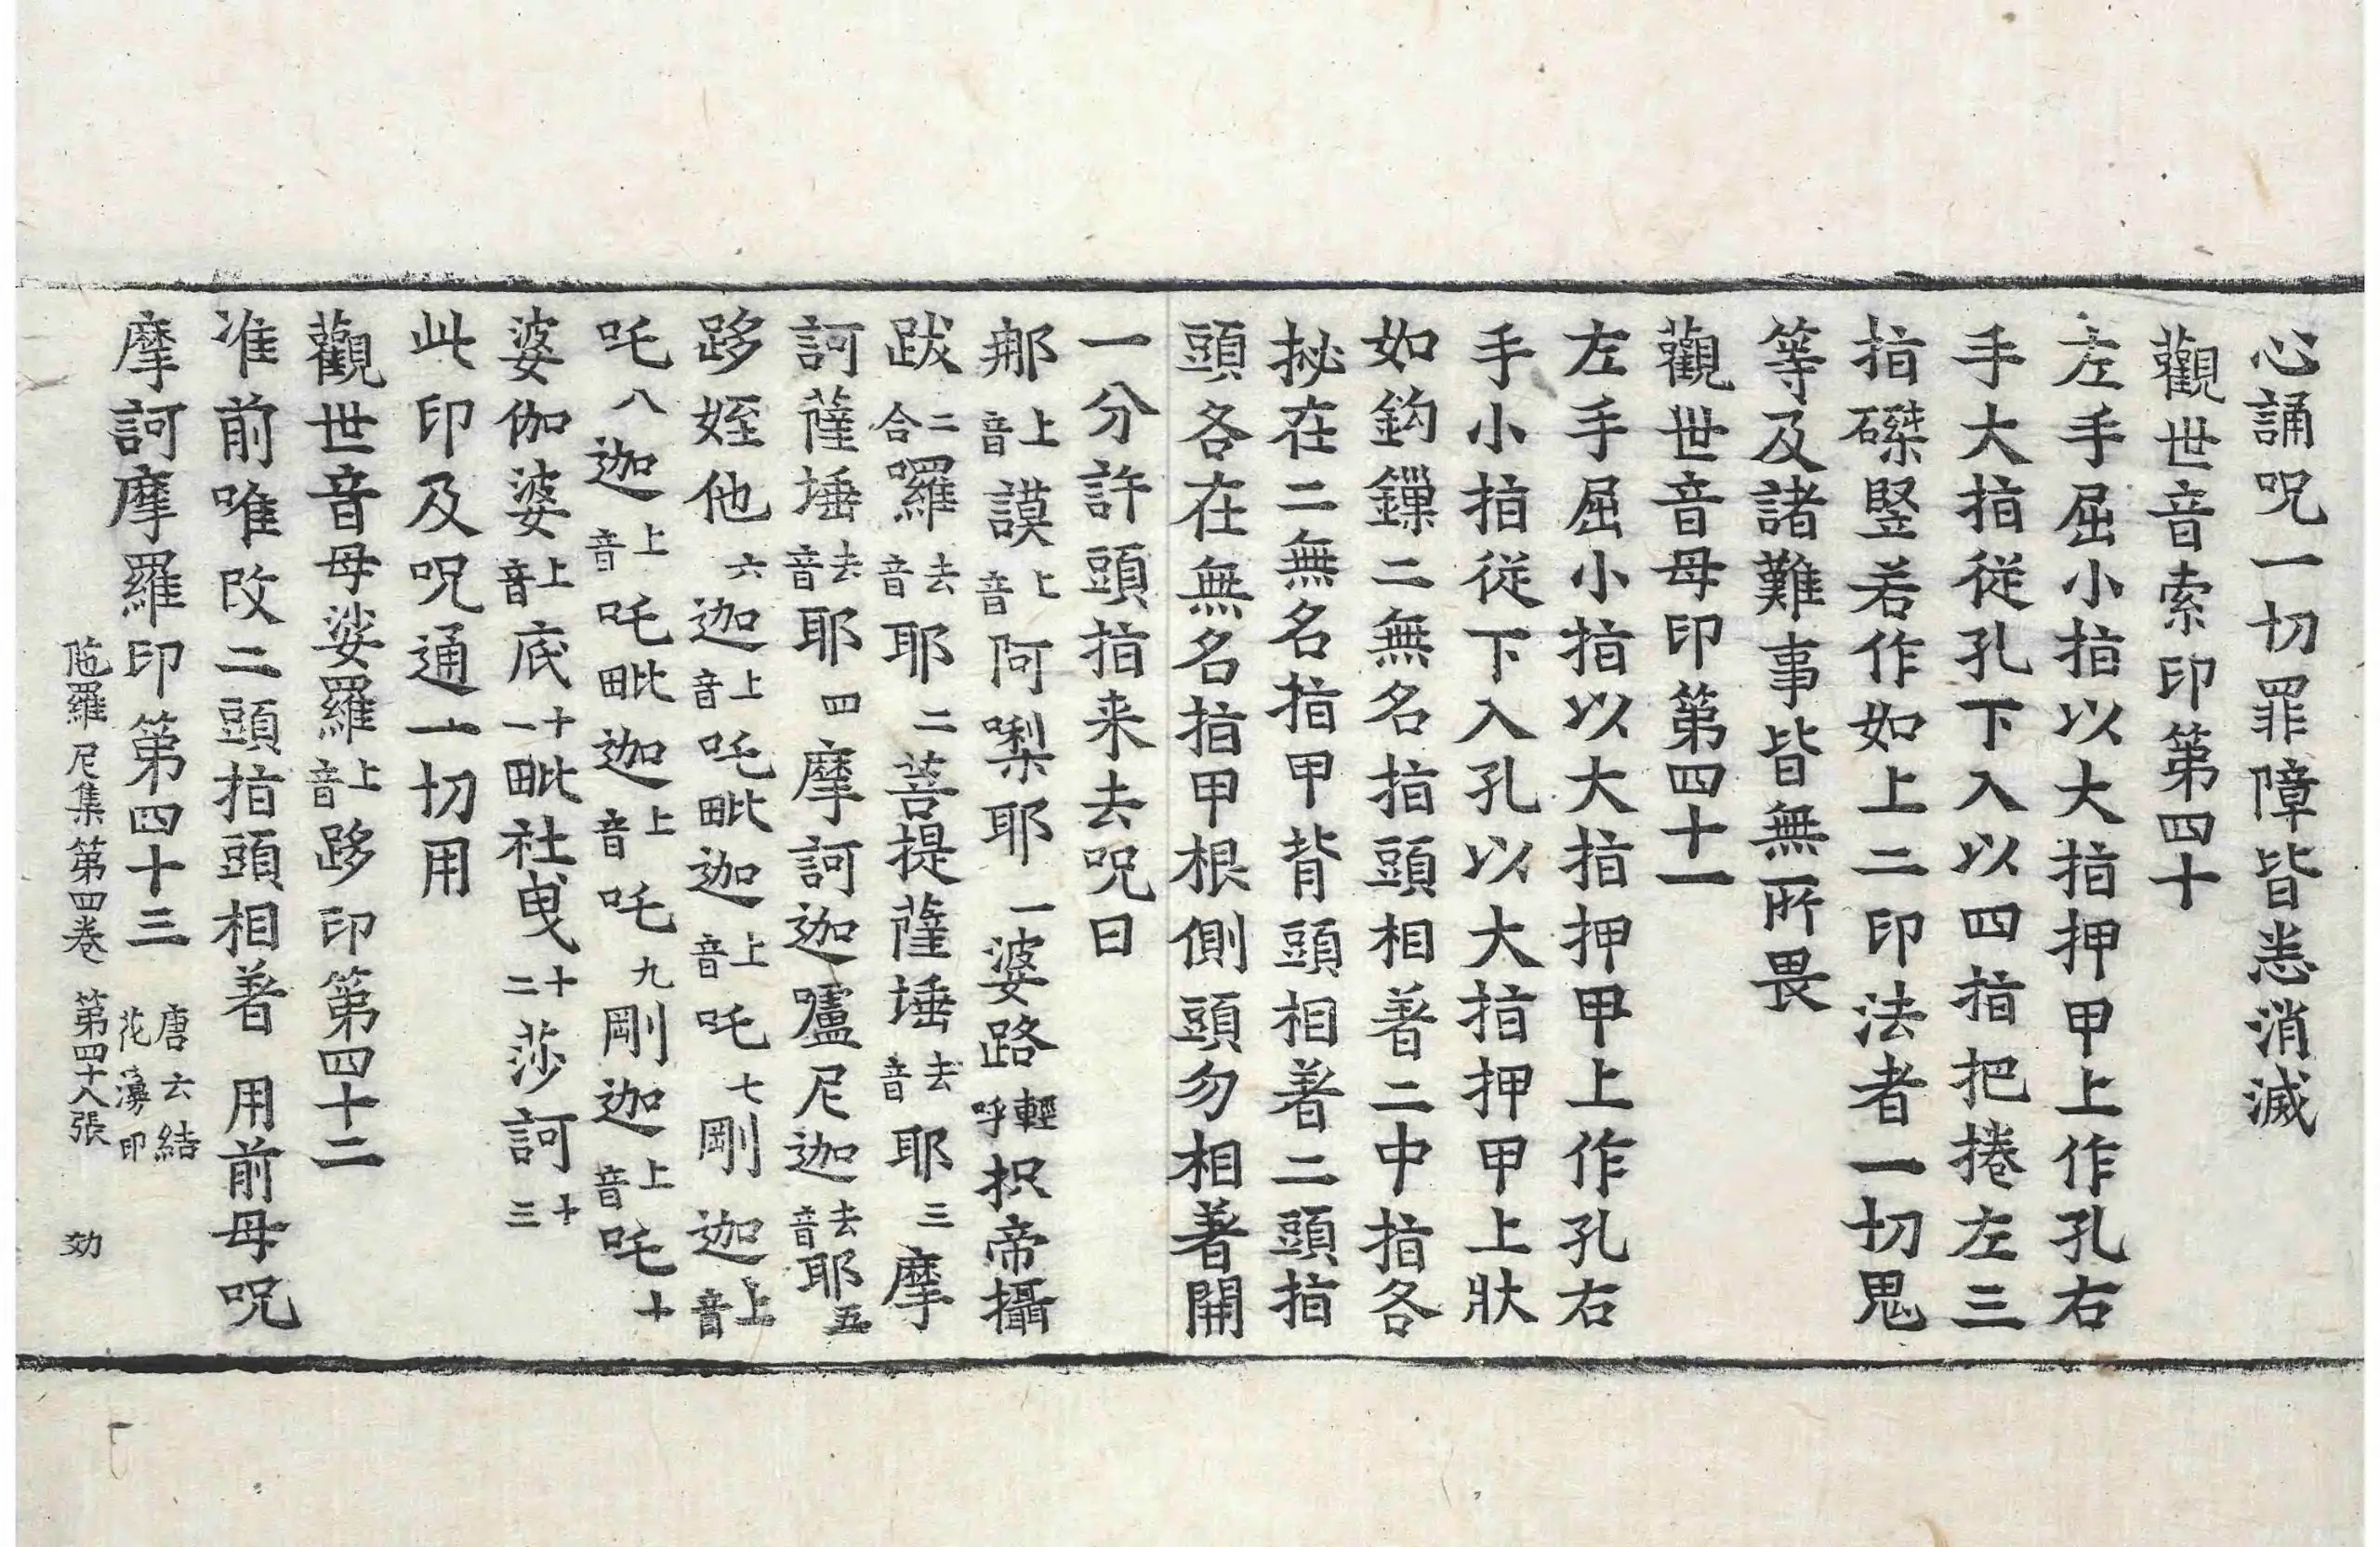 心誦呪一切罪障皆悉消滅
觀世音索印第四十
左手屈小指以大指押甲上作孔右
手大指從孔下入以四指把捲左三
指磔竪若作如上二印法者一切鬼
等及諸難事皆無所畏
觀世音母印第四十一
左手屈小指以大指押甲上作孔右
手小指從下入孔以大指押甲上狀
如鈎鏁二無名指頭相著二中指各
拟在二無名指甲背頭相著二頭指
頭各在無名指甲根側頭勿相著開
一分許頭指来去呪曰
那上音謨上音阿㗚耶一婆路輕呼枳帝攝
跋二合囉去音耶二菩提薩埵去音耶三摩
訶薩埵去音耶四摩訶迦嚧尼迦去音耶五
跢姪他六迦上音吒毗迦上音吒七剛迦上音
吒八迦上音吒毗迦上音吒九剛迦上音吒十
婆伽婆上音底十一毗社曳十二莎訶十三
此印及呪通一切用
觀世音母娑羅上音跢印第四十二
准前唯改二頭指頭相著 用前母呪
摩訶摩羅印第四十三唐云結花鬘印
陁羅尼集第四卷 第四十八張 効